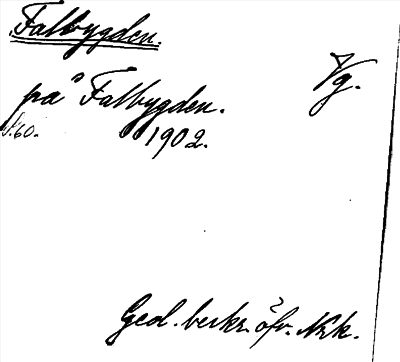 Falbygden.
Vg.
på Falbygden.
S. 60. 1902.
Geol. beskr. öfv. Nkk.